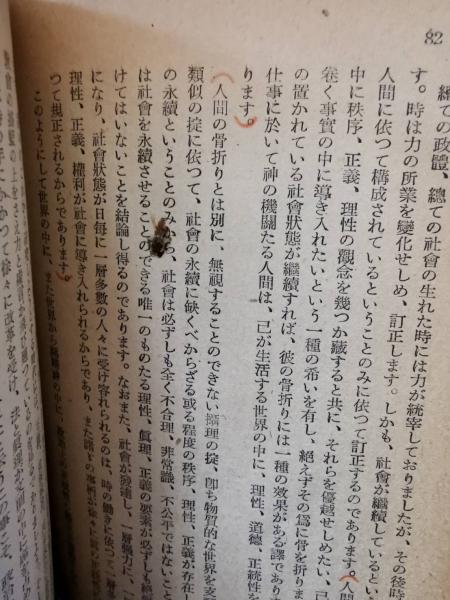 82
總ての政體、總ての社會の生れた時には力が統宰しておりましたが、その後時
す。時は力の所業を變化せしめ、訂正します。しかも、社會が繼續しているとい
人間に依つて構成されているということのみに依つて訂正するのであります。人間
中に秩序、正義、理性の觀念を幾つか藏すると共に、それらを優越せしめたい、己
卷く事實の中に導き入れたいという一種の希いを有し、絶えずその爲に骨を折りま
の置かれている社會狀態が繼續すれば、彼の骨折りには一種の效果がある譯であります
仕事に於いて神の機關たる人間は、己が生活する世界の中に、理性、道德、正統性を
ります。
人間の骨折りとは別に、無視することのできない攝理の掟、卽ち物質的な世界を支
類似の掟に依つて、社會の永續に缺くべからざる或る程度の秩序、理性、正義が存在
の永續ということのみから、社會は必ずしも全く不合理、非常識、不公平ではないこと
は社會を永續させることのできる唯一のものたる理性、眞理、正義の要素が必ずしも
けてはいないことを結論し得るのであります。なおまた、社會が發達し、一層強力に、一
になり、社會狀態が日每に一層多數の人々に受け容れられるのは、時の働きに依つて一層
理性、正義、權利が社會に導き入れられるからであり、また諸々の事柄が徐々に
つて規正されるからであります。
このようにして世界の中に、また世界から